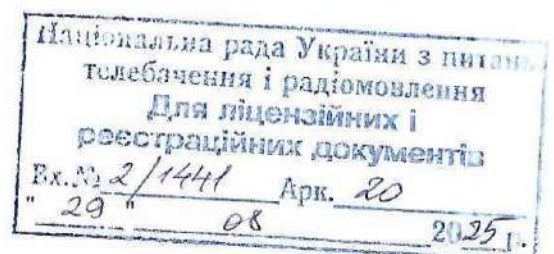 Національна рада України з питань
телебачення і радіомовлення
Для ліцензійних і
реєстраційних документів
Вх.№ 2/1441 Арк. 20
"29" 08 2025 р.